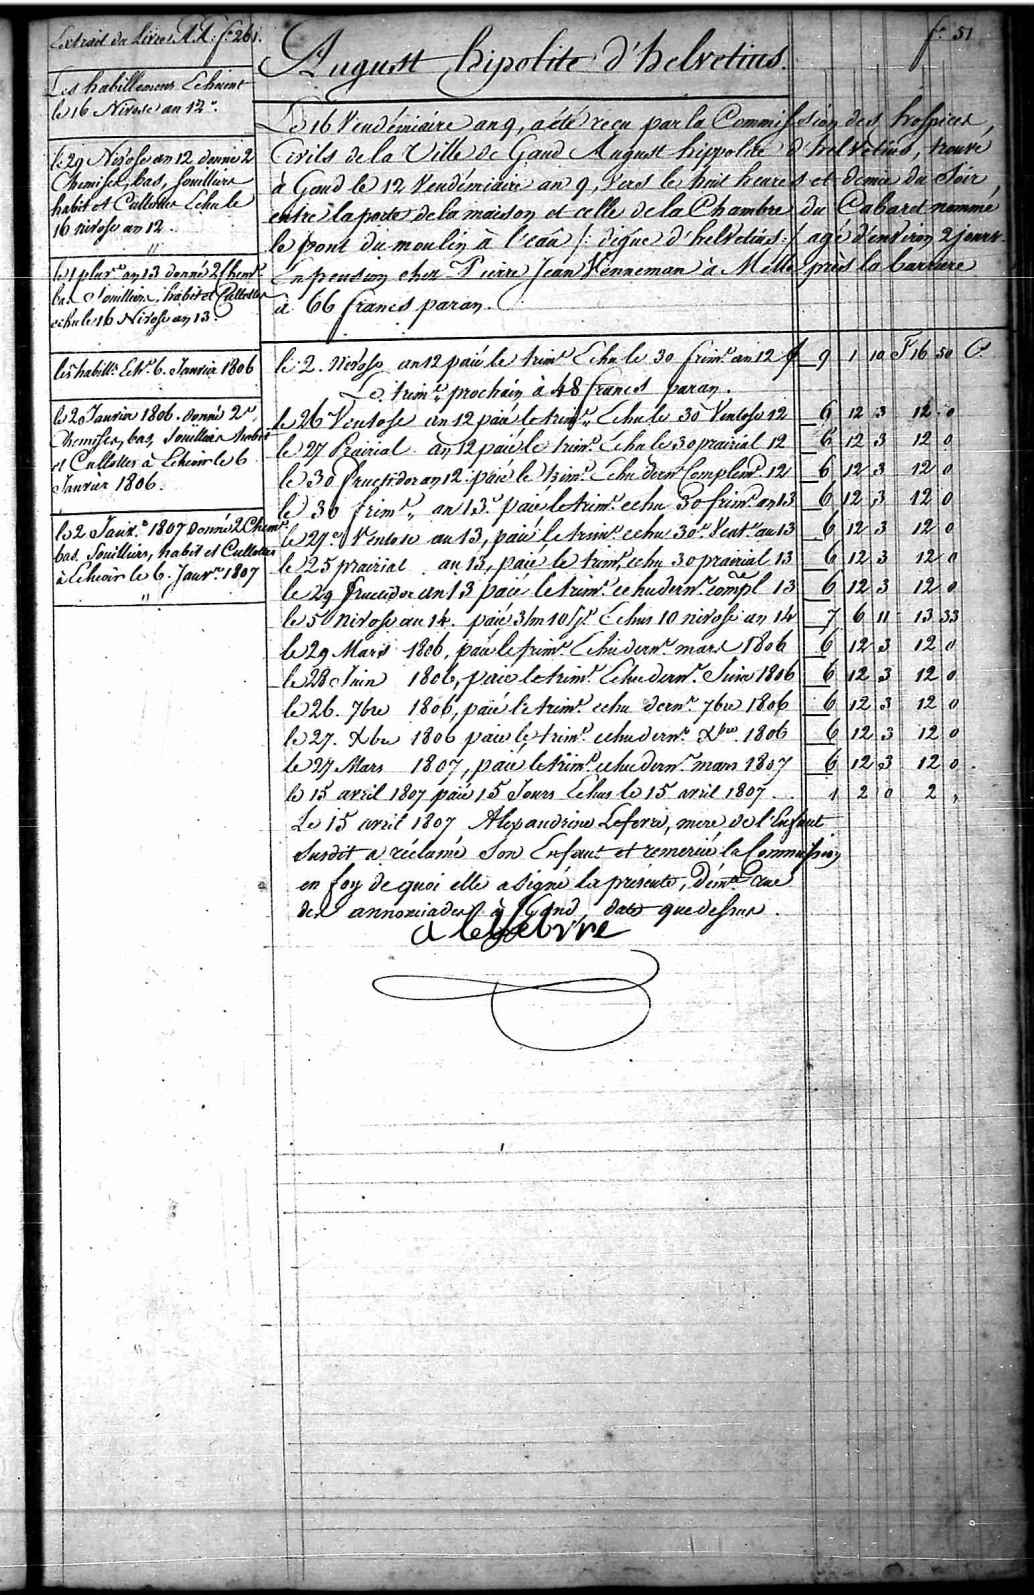 Extrait du Livre A.A. f.° 261.
f.° 51
August hipolite d'helvetius.
Les habillemens Echoient
le 16 Nivose an 12.e
le 29 Nivose an 12 donné 2
Chemises, bas, souilliers
habit et Cullottes Echu le
16 nivose an 12.
"
le 1 pluv.se an 13 donné 2 Chem.s
bas Souilliers, habit et Cullottes
echu le 16 Nivose an 13.
les habill.s Ech.t 6. Janvier 1806
le 20 Janvier 1806. donné 2
Chemises, bas, Souilliers habit
et Cullottes à Echeoir le 6
Janvier 1806.
le 2 Janv.r 1807 Donné 2 Chem.s
bas. Souilliers, habit et Cullottes
à Echeoir le 6. Janv.r 1807
"
Le 16 Vendémiaire an 9, a été reçu par la Commission des hospices
Civils de la Ville de Gand August hippolite d'helvetius, trouvé
à Gand le 12 Vendémiaire an 9, vers le huit heures et demie du Soir,
entre la porte de la maison et celle de la Chambre du Cabaret nommé
le pont du moulin à l'eau /: digue d'helvetius :/ agé d'environ 2 jours.
En pension chez Pierre Jean Venneman à Melle près la barriere
à 66 francs par an.
le 2. Nivose an 12 paié le trim.e Echu le 30 frim.e an 12 £ 9 1 10 F 16 50 C.
Le trim.e prochain à 48 francs par an.
le 26 Ventose an 12 paié le trim.e Echu le 30 Ventose 12 6 12 3 12 0
le 27 Prairial an 12 paié le trim.e Echu le 30 prairial 12 6 12 3 12 0
le 30 fructidor an 12 paié le trim.e Echu dern.r Complem.e 12 6 12 3 12 0
le 30 frim.e an 13.e paié le trim.e echu 30 frim.e an 13 6 12 3 12 0
le 27.e Ventose an 13, paié le trim.e echu 30.e Vent.e an 13 6 12 3 12 0
le 25 prairial an 13, paié le trim.e echu 30 prairial 13 6 12 3 12 0
le 29 fructidor an 13 paié le trim.e echu dern.r compl 13 6 12 3 12 0
le 5 nivose an 14. paié 3 m 10 j.rs Echus 10 nivose an 14 7 6 11 13 33
le 29 Mars 1806, paié le trim.e Echu dern.r mars 1806 6 12 3 12 0
le 28 Juin 1806, paié le trim.e Echu dern.r Juin 1806 6 12 3 12 0
le 26. 7bre 1806, paié le trim.e echu dern.r 7bre 1806 6 12 3 12 0
le 27. Xbre 1806 paié le trim.e echu dern.r Xbre 1806 6 12 3 12 0
le 27 Mars 1807, paié le trim.e echu dern.r mars 1807 6 12 3 12 0
le 15 avril 1807 paié 15 Jours Echus le 15 avril 1807 1 2 0 2 ,
Le 15 avril 1807 Alexandrine Lefevre, mere de l'Enfant
susdit a réclamé son Enfant et remercié la Commission
en foy de quoi elle a signé la présente, dem.t Rue
des annonciades à Gand, date que dessus.
a lefebvre